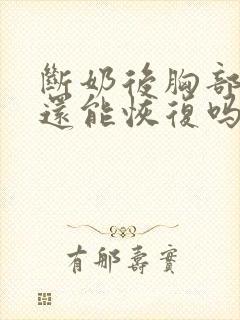 斷奶後胸部
還能恢復嗎
有那壽實